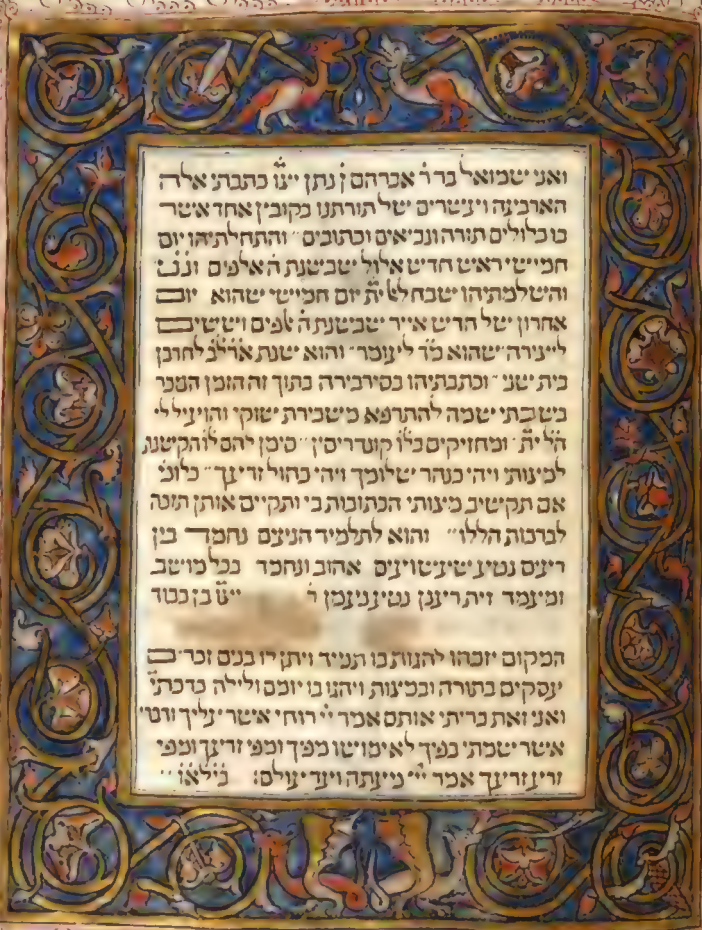 ואני שמואל בר׳ אברהם ן׳ נתן ייצו כתבתי אלה
הארבעה ועשרים של תורתנו בקובץ אחד אשר
בו כלולים תורה ונביאים וכתובים והתחלתיהו יום
חמישי ראש חדש אלול שבשנת ה אלפים ונט
והשלמתיהו יום חמישי שהוא יום
אחרון של חדש אייר שבשנת ה אלפים וששים
ליצירה שהוא מד לעומר והוא שנת לחורבן
בית שני וכתבתיהו בסירבירה בתוך זה הזמן הנזכר
בשבתי שמה להתרפא משבירת שוקי והועיל לי
הלית ומחזיקים בלו קונדריסין סימן להם לו הקשבת
למצותי ויהי כנהר שלומך ויהי כחול זרעך כלומ׳
אם תקשיב מצותי הכתובות בי ותקיים אותן תזכה
לברכות הללו והוא לתלמיד הנעים נחמד בין
רעים נטיע שעשועים אהוב ונחמד בכל מושב
ומעמד זית רענן נטיע נעמן ר׳ ייצו בן כבוד
המקום יזכהו להגות בו תמיד ויתן לו בנים זכרים
עסקים בתורה ובמצות ויהגו בו יומם ולילה כדכתי׳
ואני זאת בריתי אותם אמר יי׳ רוחי אשר עליך ודברי
אשר שמתי בפיך לא ימושו מפיך ומפי זרעך ומפי
זרע זרעך אמר יי׳ מעתה ועד עולם׃